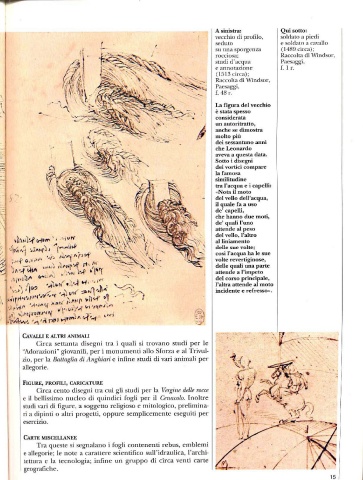 A sinistra:
vecchio di profilo,
seduto
su una sporgenza
rocciosa;
studi d'acqua
e annotazione
(1513 circa);
Raccolta di Windsor,
Paesaggi,
f. 48 r.
La figura del vecchio
è stata spesso
considerata
un autoritratto,
anche se dimostra
molto più
dei sessantun anni
che Leonardo
aveva a questa data.
Sotto i disegni
dei vortici compare
la famosa
similitudine
tra l'acqua e i capelli:
«Nota il moto
del vello dell'acqua,
il quale fa a uso
de' capelli,
che hanno due moti,
de' quali l'uno
attende al peso
del vello, l'altro
al liniamento
delle sue volte;
così l'acqua ha le sue
volte revertiginose,
delle quali una parte
attende a l'impeto
del corso principale,
l'altra attende al moto
incidente e refresso».
Qui sotto:
soldato a piedi
e soldato a cavallo
(1480 circa);
Raccolta di Windsor,
Paesaggi,
f. 1 r.
CAVALLI E ALTRI ANIMALI
Circa settanta disegni tra i quali si trovano studi per le
"Adorazioni" giovanili, per i monumenti allo Sforza e al Trivul-
zio, per la Battaglia di Anghiari e infine studi di vari animali per
allegorie.
FIGURE, PROFILI, CARICATURE
Circa cento disegni tra cui gli studi per la Vergine delle rocce
e il bellissimo nucleo di quindici fogli per il Cenacolo. Inoltre
studi vari di figure, a soggetto religioso e mitologico, prelimina-
ri a dipinti o altri progetti, oppure semplicemente eseguiti per
esercizio.
CARTE MISCELLANEE
Tra queste si segnalano i fogli contenenti rebus, emblemi
e allegorie; le note a carattere scientifico sull'idraulica, l'archi-
tettura e la tecnologia; infine un gruppo di circa venti carte
geografiche.
15